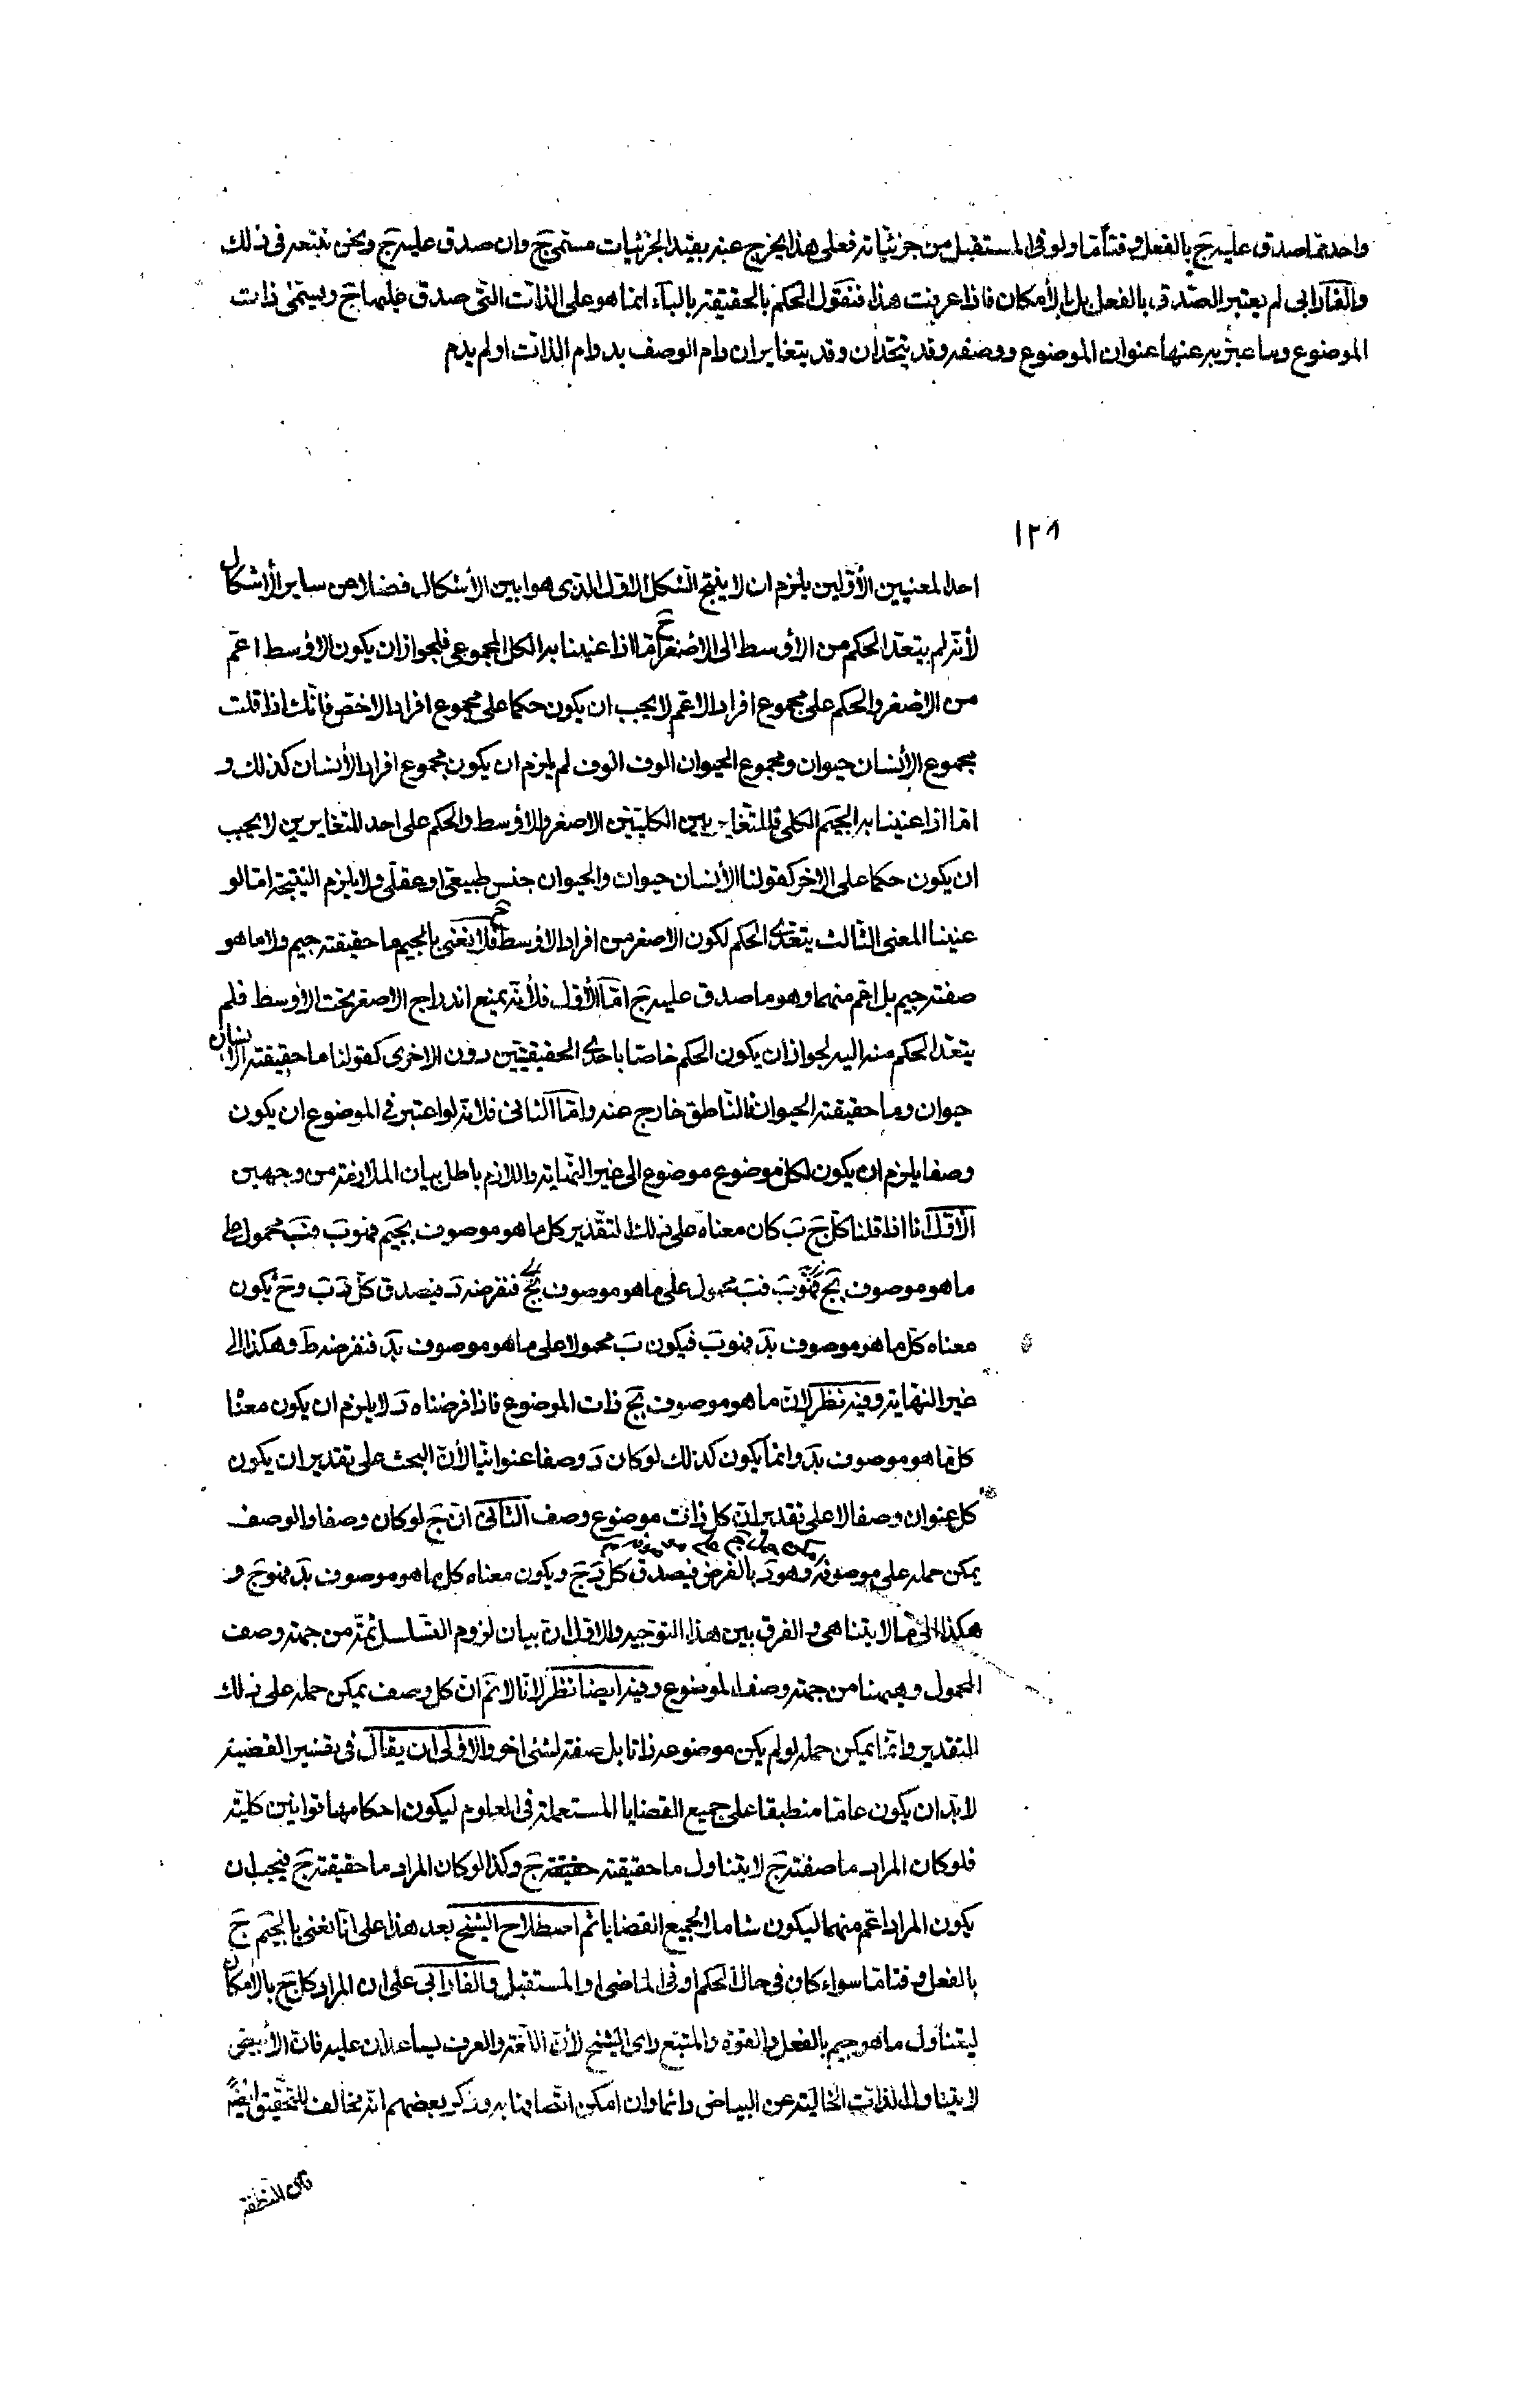 واحد مما صدق عليه ج بالفعل وقتاً مّا ولو فى المستقبل من جزئياته فعلى هذا يخرج عنه بقيد الجزئيات مسمى ج وان صدق عليه ج ونحن نتبعه فى ذلك
والفارابى لم يعتبر الصّدق بالفعل بل بالإمكان فاذا عرفت هذا فنقول الحكم بالحقيقة بالباء انما هو على الذات التى صدق عليها ج ويسمى ذات
الموضوع وما عبّر به عنها عنوان الموضوع ووصفه وقد يتحدان وقد يتغايران دام الوصف بدوام الذات او لم يدم
١٢٨
احد المعنيين الأوّلين يلزم ان لا ينتج الشكل الاوّل الذى هو ابين الأشكال فضلا عن ساير الأشكال
لأنّه لم يتعدّ الحكم من الأوسط الى الاصغر ح امّا اذا عنينا به الكل المجموعى فلجواز ان يكون الاوسط اعمّ
من الاصغر والحكم على مجموع افراد الاعم لا يجب ان يكون حكما على مجموع افراد الاخصّ فانّك اذا قلت
مجموع الإنسان حيوان ومجموع الحيوان الوف الوف لم يلزم ان يكون مجموع افراد الأنسان كذلك و
امّا اذا عنينا به الجيم الكلى فللتغاير بين الكليتين الاصغر والاوسط والحكم على احد المتغايرين لا يجب
ان يكون حكما على الاخر كقولنا الأنسان حيوان والحيوان جنس طبيعى او عقلى ولا يلزم النتيجة امّا لو
عنينا المعنى الثالث يتعدى الحكم لكون الاصغر من افراد الاوسط ح فلا نعنى بالجيم ما حقيقته جيم ولا ما هو
صفته جيم بل اعم منهما وهو ما صدق عليه ج امّا الأوّل فلأنّه يمنع اندراج الاصغر تحت الاوسط فلم
يتعدّ الحكم منه اليه لجواز ان يكون الحكم خاصّا باحدى الحقيقتين دون الاخرى كقولنا ما حقيقته الانسان
حيوان وما حقيقته الحيوان فالنّاطق خارج عنه وامّا الثانى فلانّه لو اعتبر فى الموضوع ان يكون
وصفا يلزم ان يكون لكل موضوع موضوع الى غير النّهاية واللازم باطل بيان الملازمة من وجهين
الأوّل انا اذا قلنا كلّ ج ب كان معناه على ذلك التقدير كل ما هو موصوف بجيم فهو ب فب محمول على
ما هو موصوف بج فهو ب فب محمول على ما هو موصوف بج فنفرضه د فيصدق كلّ د ب وح يكون
معناه كلّ ما هو موصوف بد فهو ب فيكون ب محمولا على ما هو موصوف بد فنفرضه ط وهكذا الى
غير النهاية وفيه نظر لانّ ما هو موصوف بج ذات الموضوع فاذا فرضناه د لا يلزم ان يكون معناه
كل ما هو موصوف بد وانما يكون كذلك لو كان د وصفا عنوانيّا لأنّ البحث على تقدير ان يكون
كل عنوان وصفا لا على تقدير انّ كل ذات موضوع وصف الثانى انّ ج لو كان وصفا والوصف
يمكن حمله على موصوفه وهو د بالفرض فيصدق كل د ج ويكون معناه كل ما هو موصوف بد فهو ج و
هكذا الى ما لا يتناهى والفرق بين هذا التوجيه والاوّل انّ بيان لزوم التسلسل ثمّة من جهة وصف
المحمول وهيهنا من جهة وصف الموضوع وفيه ايضا نظر لانّا لا نم انّ كل وصف يمكن حمله على ذلك
التقدير وانّما يمكن حمله لو لم يكن موضوعه ذاتا بل صفة لشئ اخر والاولى ان يقال فى تفسير القضيّة
لا بدّ ان يكون عامّا منطبقا على جميع القضايا المستعملة فى العلوم ليكون احكامها قوانين كلّية
فلو كان المراد ما صفته ج لا يتناول ما حقيقته حقيقة ج وكذا لو كان المراد ما حقيقته ج فيجب ان
يكون المراد اعمّ منهما ليكون شاملا لجميع القضايا ثم اصطلاح الشيخ بعد هذا على انّا نعنى بالجيم ج
بالفعل وقتا مّا سواء كان فى حال الحكم او فى الماضى او المستقبل والفارابى على ان المراد كل ج بالأمكان
ليتناول ما هو جيم بالفعل والقوة والمتبع راى الشيخ لأنّ اللغة والعرف يساعدان عليه فانّ الأبيض
لا يتناول الذات الخالية عن البياض دائما وان امكن اتّصافها به وذكر بعضهم انّه مخالف للتحقيق ايضاً
فان النطفة